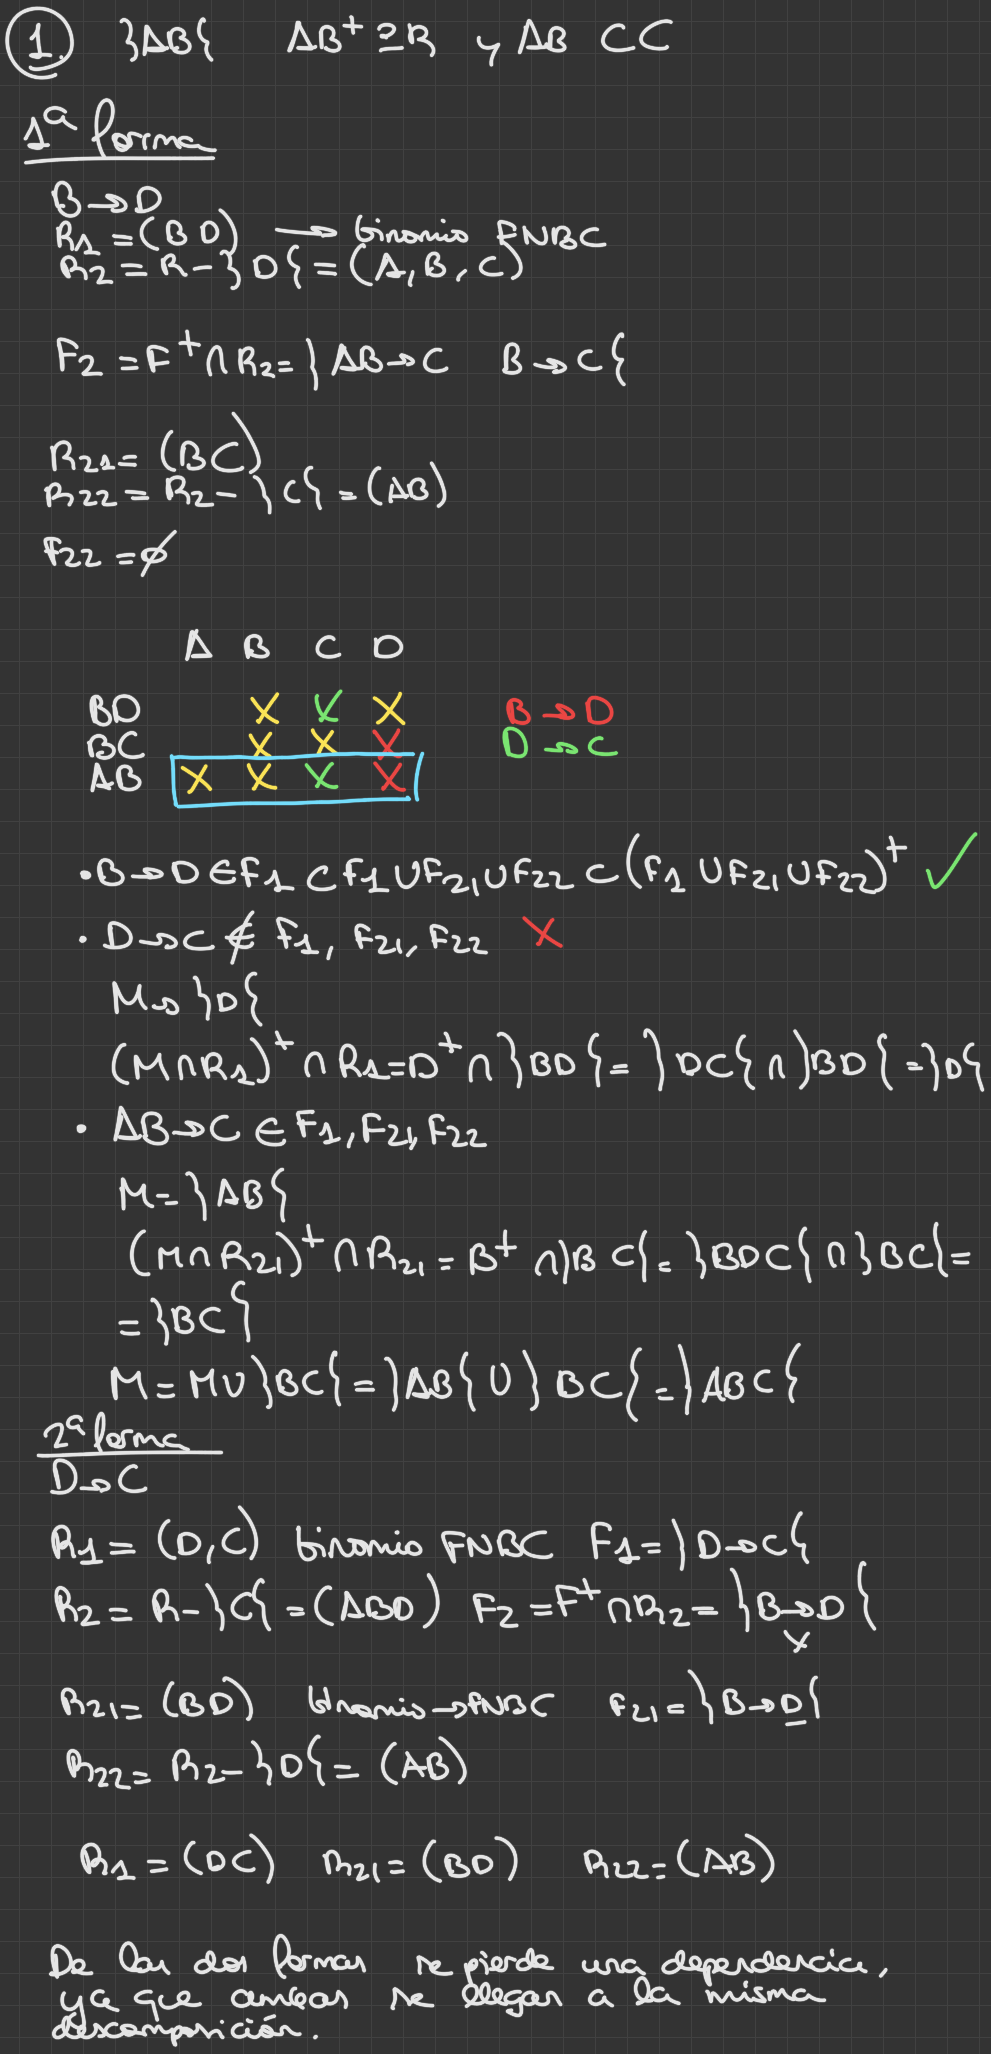 1. }AB{ AB⁺ ⊇ R y AB CC
1ª forma
B→D
R1 = (BD) → binomio FNBC
R2 = R - }D{ = (A, B, C)
F2 = F⁺ ∩ R2 = } AB→C B→C {
R21 = (BC)
R22 = R2 - }C{ = (AB)
F22 = ∅
A B C D
BD X X X B→D
BC X X X D→C
AB X X X X
• B→D ∈ F1 ⊂ F1 ∪ F21 ∪ F22 ⊂ (F1 ∪ F21 ∪ F22)⁺ ✓
• D→C ∉ F1, F21, F22 X
M→}D{
(M∩R1)⁺ ∩ R1 = D⁺ ∩ }BD{ = }DC{ ∩ }BD{ = }D{
• AB→C ∈ F1, F21, F22
M = }AB{
(M∩R21)⁺ ∩ R21 = B⁺ ∩ }BC{ = }BDC{ ∩ }BC{ =
= }BC{
M = M∪}BC{ = }AB{ ∪ }BC{ = }ABC{
2ª forma
D→C
R1 = (D,C) binomio FNBC F1 = }D→C{
R2 = R - }C{ = (ABD) F2 = F⁺ ∩ R2 = }B→D{
X
R21 = (BD) binomio→FNBC F21 = }B→D{
R22 = R2 - }D{ = (AB)
R1 = (DC) R21 = (BD) R22 = (AB)
De las dos formas se pierde una dependencia,
ya que ambas se llegan a la misma
descomposición.